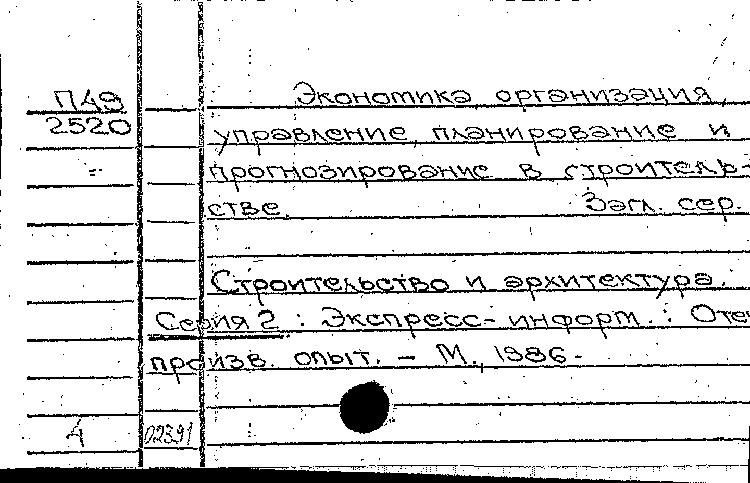 П49
2520
Экономика, организация,
управление, планирование и
прогнозирование в строитель-
стве. Загл. сер.
Строительство и архитектура.
Серия 2 : Экспресс-информ. : Оте
произв. опыт. - М., 1986-
А 02391